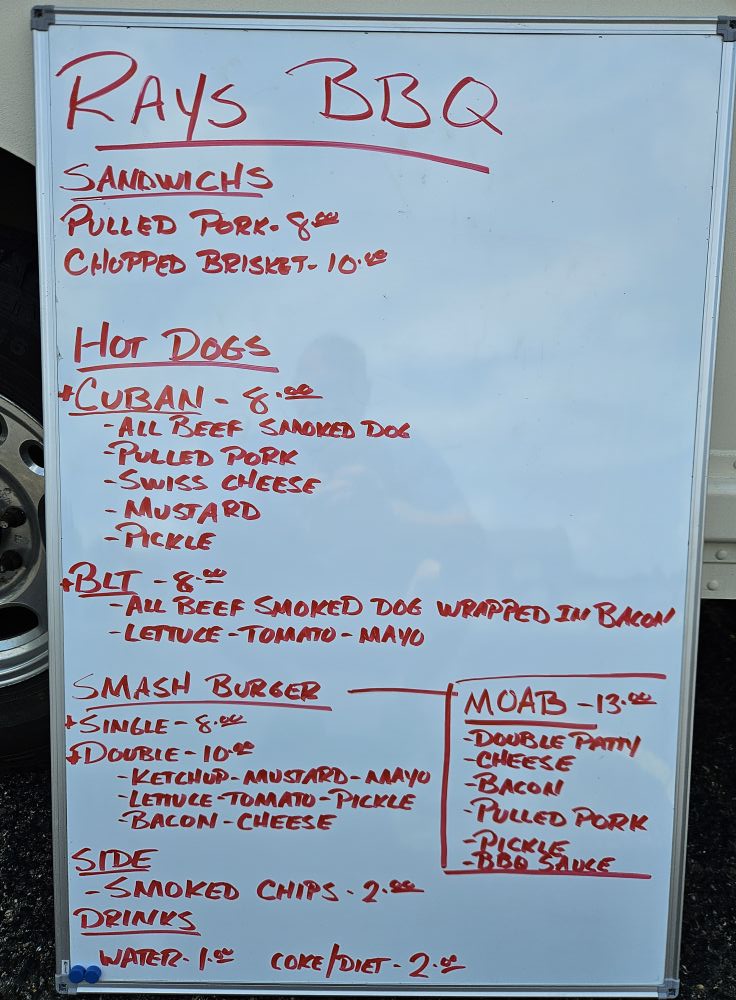 RAYS BBQ
SANDWICHS
PULLED PORK - 8.00
CHOPPED BRISKET - 10.00
HOT DOGS
CUBAN - 8.00
- ALL BEEF SMOKED DOG
- PULLED PORK
- SWISS CHEESE
- MUSTARD
- PICKLE
BLT - 8.00
- ALL BEEF SMOKED DOG WRAPPED IN BACON
- LETTUCE - TOMATO - MAYO
SMASH BURGER
SINGLE - 8.00
DOUBLE - 10.00
- KETCHUP - MUSTARD - MAYO
- LETTUCE - TOMATO - PICKLE
- BACON - CHEESE
MOAB - 13.00
- DOUBLE PATTY
- CHEESE
- BACON
- PULLED PORK
- PICKLE
- BBQ SAUCE
SIDE
- SMOKED CHIPS - 2.00
DRINKS
WATER - 1.00 COKE/DIET - 2.00